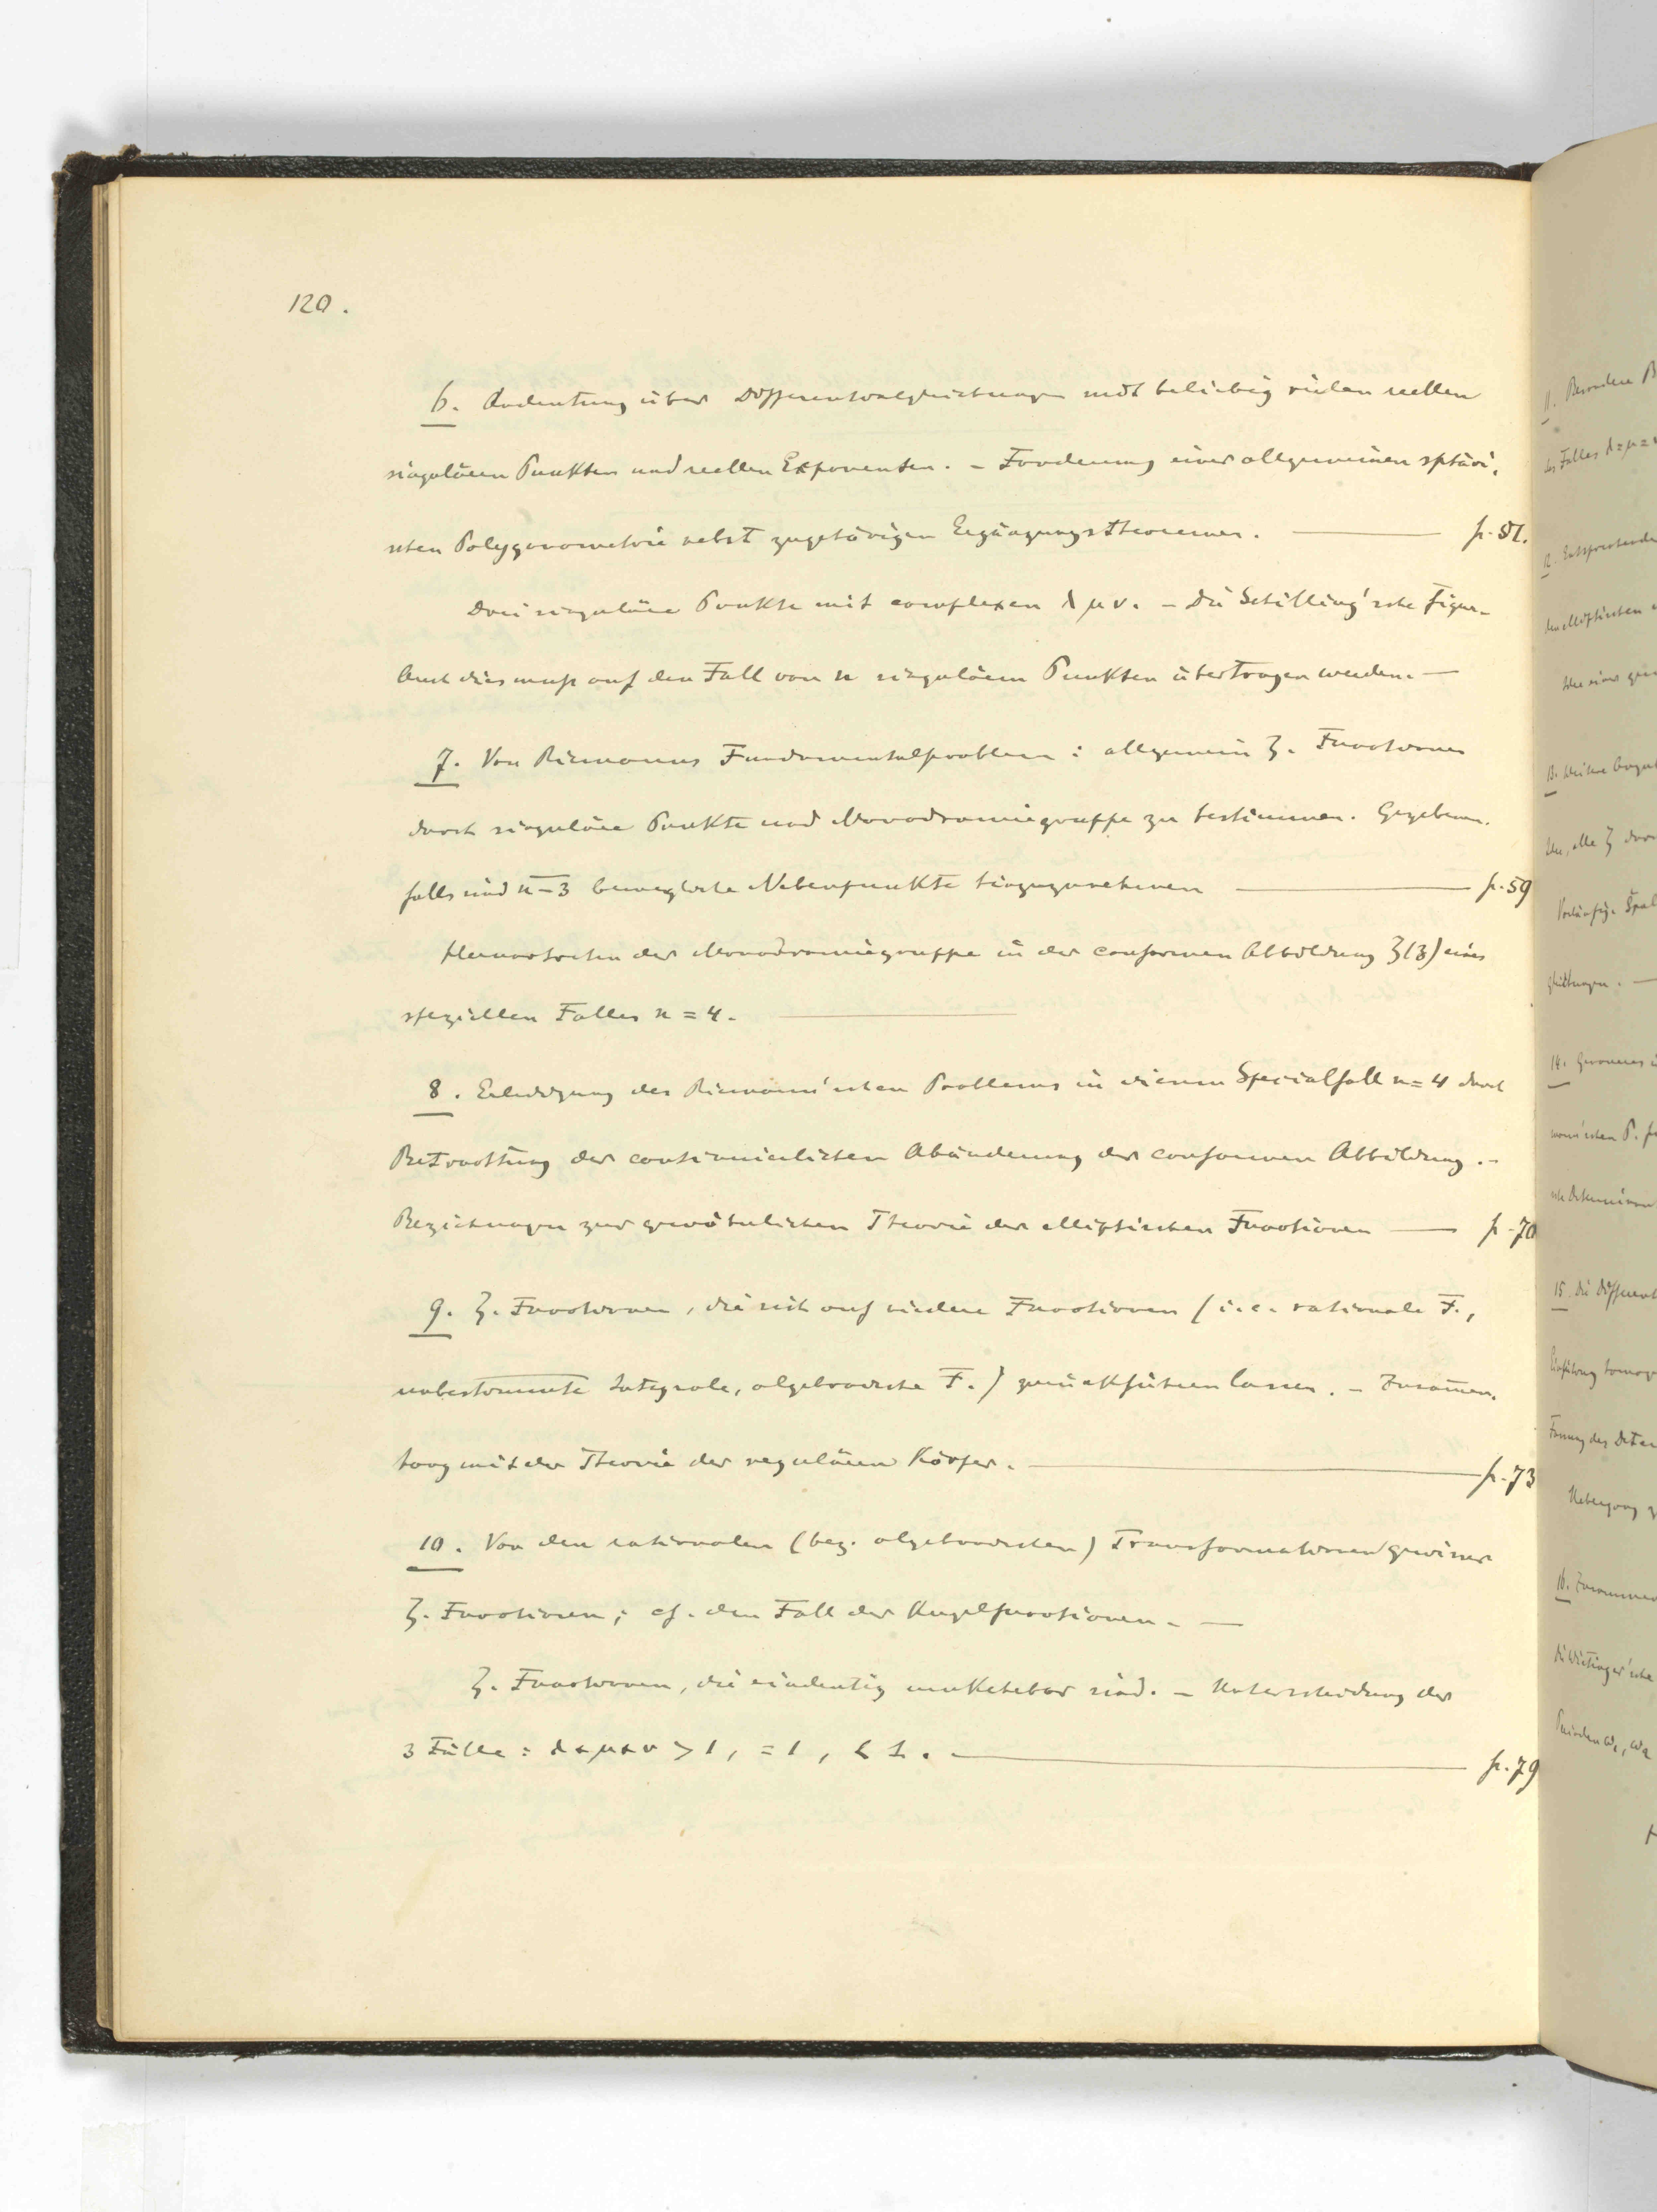 120.
6. Andeutung über Differentialgleichungen mit beliebig vielen reellen
singulären Punkten und reellen Exponenten. – Forderung einer allgemeinen sphäri-
schen Polygonometrie nebst zugehörigen Ergänzungstheoremen. — p. 51.
Drei singuläre Punkte mit complexen λ μ ν. – Die Schilling'sche Figur.
Auch dies muß auf den Fall von n singulären Punkten übertragen werden. —
7. Von Riemanns Fundamentalproblem: allgemein ζ-Functionen
durch singuläre Punkte und Monodromiegruppe zu bestimmen. Gegebenen-
falls sind n-3 bewegliche Nebenpunkte hinzuzunehmen — p. 59
Hervortreten der Monodromiegruppe in der conformen Abbildung ζ(z) eines
speziellen Falles n = 4. —
8. Erledigung des Riemann'schen Problems in diesem Specialfall n = 4 durch
Betrachtung der continuierlichen Abänderung der conformen Abbildung. –
Beziehungen zur gewöhnlichen Theorie der elliptischen Functionen — p. 70
9. ζ-Functionen, die sich auf niedere Functionen (i.e. rationale F.,
unbestimmte Integrale, algebraische F.) zurückführen lassen. – Zusam̅en-
hang mit der Theorie der regulären Körper. — p. 73
10. Von den rationalen (bez. algebraischen) Transformationen gewisser
ζ-Functionen; cf. den Fall der Kugelfunctionen. —
ζ-Functionen, die eindeutig umkehrbar sind. – Unterscheidung der
3 Fälle: λ+μ+ν > 1, = 1, < 1. — p. 79
11. Besondere
des Falles λ=μ=
12. Entsprechende
der elliptischen
13. Weitere
14.
15. Die Different
Einführung homog
Uebergang
16. Zusammen
Perioden ω₁, ω₂